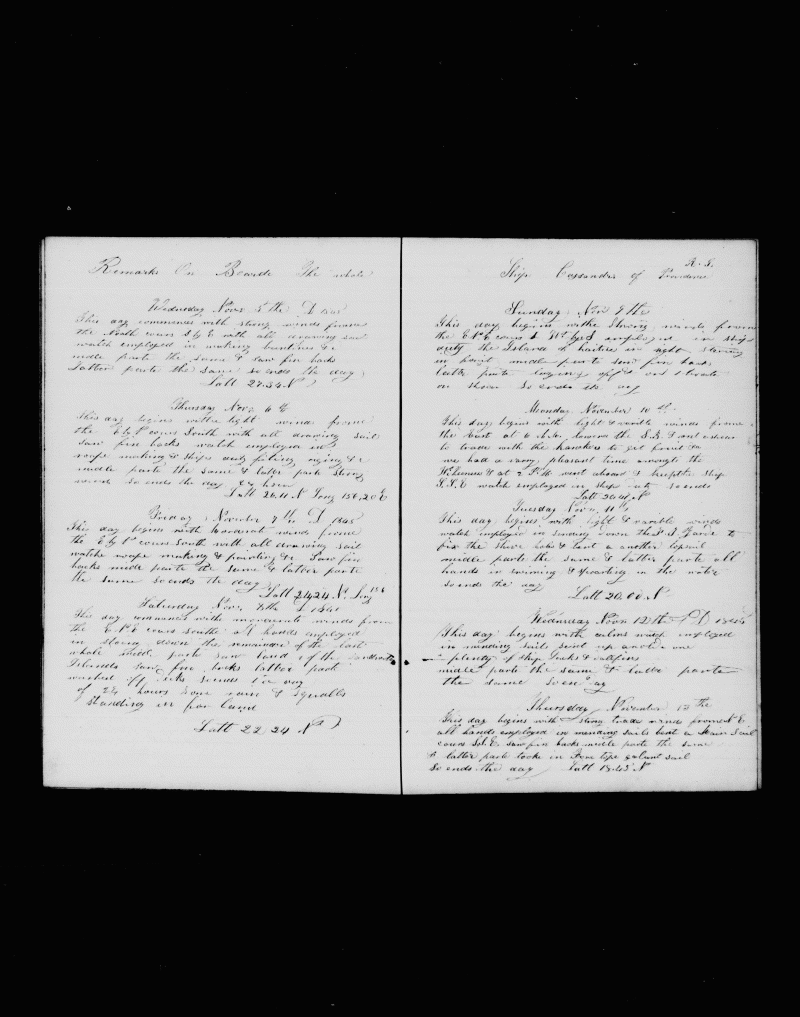 Remarks On Boarde The whale
Wednesday Novr 5th D 1845
This day commences with strong winds frome
the North cours S by E with all drawing sail
watch employed in making buntlines &c
midle parte the same & saw fin backs
latter parte the same so ends the day
Latt 27.34 N
Thursday Nov. 6th
This day begins withe light winds frome
the E by N cours South with all drawing sail
saw fin backs watch employed in
roape making & ships duty fiting riging & c
midle parte the same & later parte strong
winds so ends the day
Latt 26.11 N Long 156,20 E
Friday November 7th D 1845
This day begins with moderate winds frome
the E by N cours South with all drawing sail
watche roape making & painting &c Saw fin
backs midle parte the same & latter parte
the same so ends the day
Latt 24,24 N. Long 156
Saturday Nov. 8th D 1845
This day commences with moderate winds from
the E N E cours South all hands employed
in stowing down the remainder of the last
whale midl parte saw land of the Sandwich
Islands saw fine backs latter part
washed off decks so ends the day
of 24 hours some rain & squalls
Standing in for land
Latt 22 24 N
R. I.
Ship Cassander of Providence
Sunday Nov 9the
This day begins withe strong winds frome
the E N E cours S W by S employed in ship
duty the Islands in sight standing
in for it midle parte saw fin backs
latte parte laying off and on
on shore so ends the day
Monday November 10th
This day begins with light & varible winds frome
the East at 6 A.M. lowered the S.B. & went ashore
to trade with the kanakers to get fruit &c
we had a very pleasant time amongte the
Wihemes & at 2 P.M. went aboard & kept the ship
S.S.E watch employed in ships duty so ends
Latt 20.41 N
Tuesday Nov. 11th
This day begins with light & varible winds
watch employed in sending down the F. T. Yarde to
fix the shive hole & bent a another topsail
middle parte the same & latter parte all
hands in swiming & sporting in the water
so ends the day
Latt 20.00 N
Wednesday Novr 12the D 1845
This day begins with calms watch employed
in mending sails sent up another one
plenty of ship Jacks & dallfins
midle parte the same & latte parte
the same so ends day
Thursday November 13 the
This day begins with strong trade winds from N E
all hands employed in mending sails bent a Main Sail
cours S by E. saw fin backs midle parte the same
& latter parte tooke in Fore tope galant sail
So ends the day Latt 18.43 N